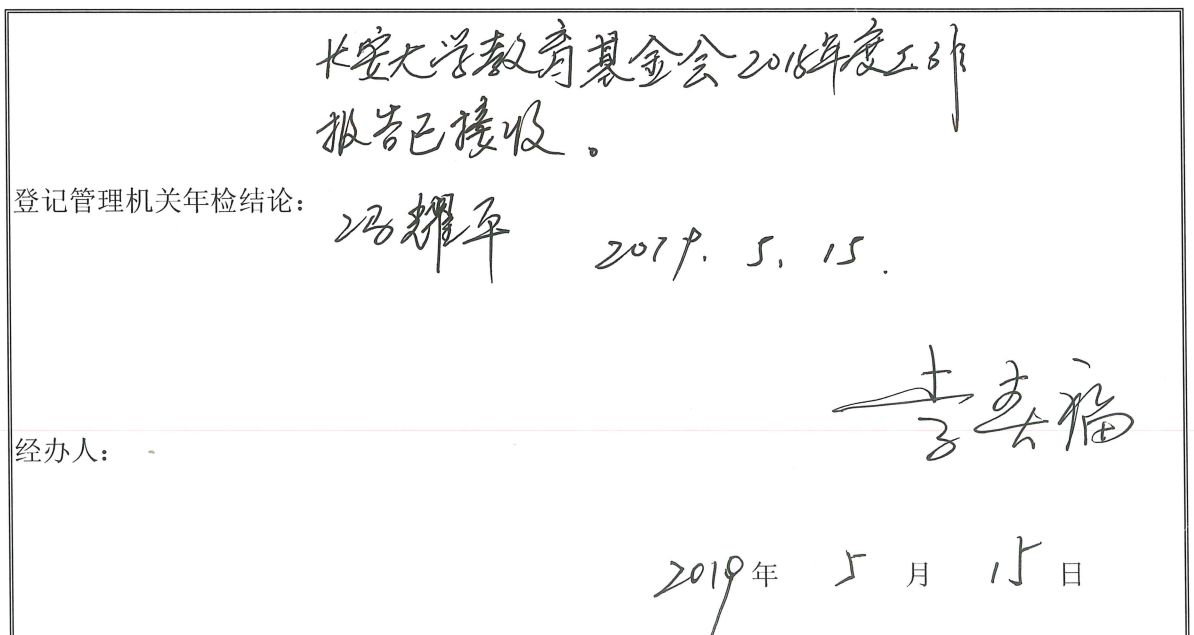 长安大学教育基金会2018年度工作
报告已接收。
登记管理机关年检结论：
冯耀平 2019. 5. 15.
李春福
经办人：
2019年 5 月 15 日